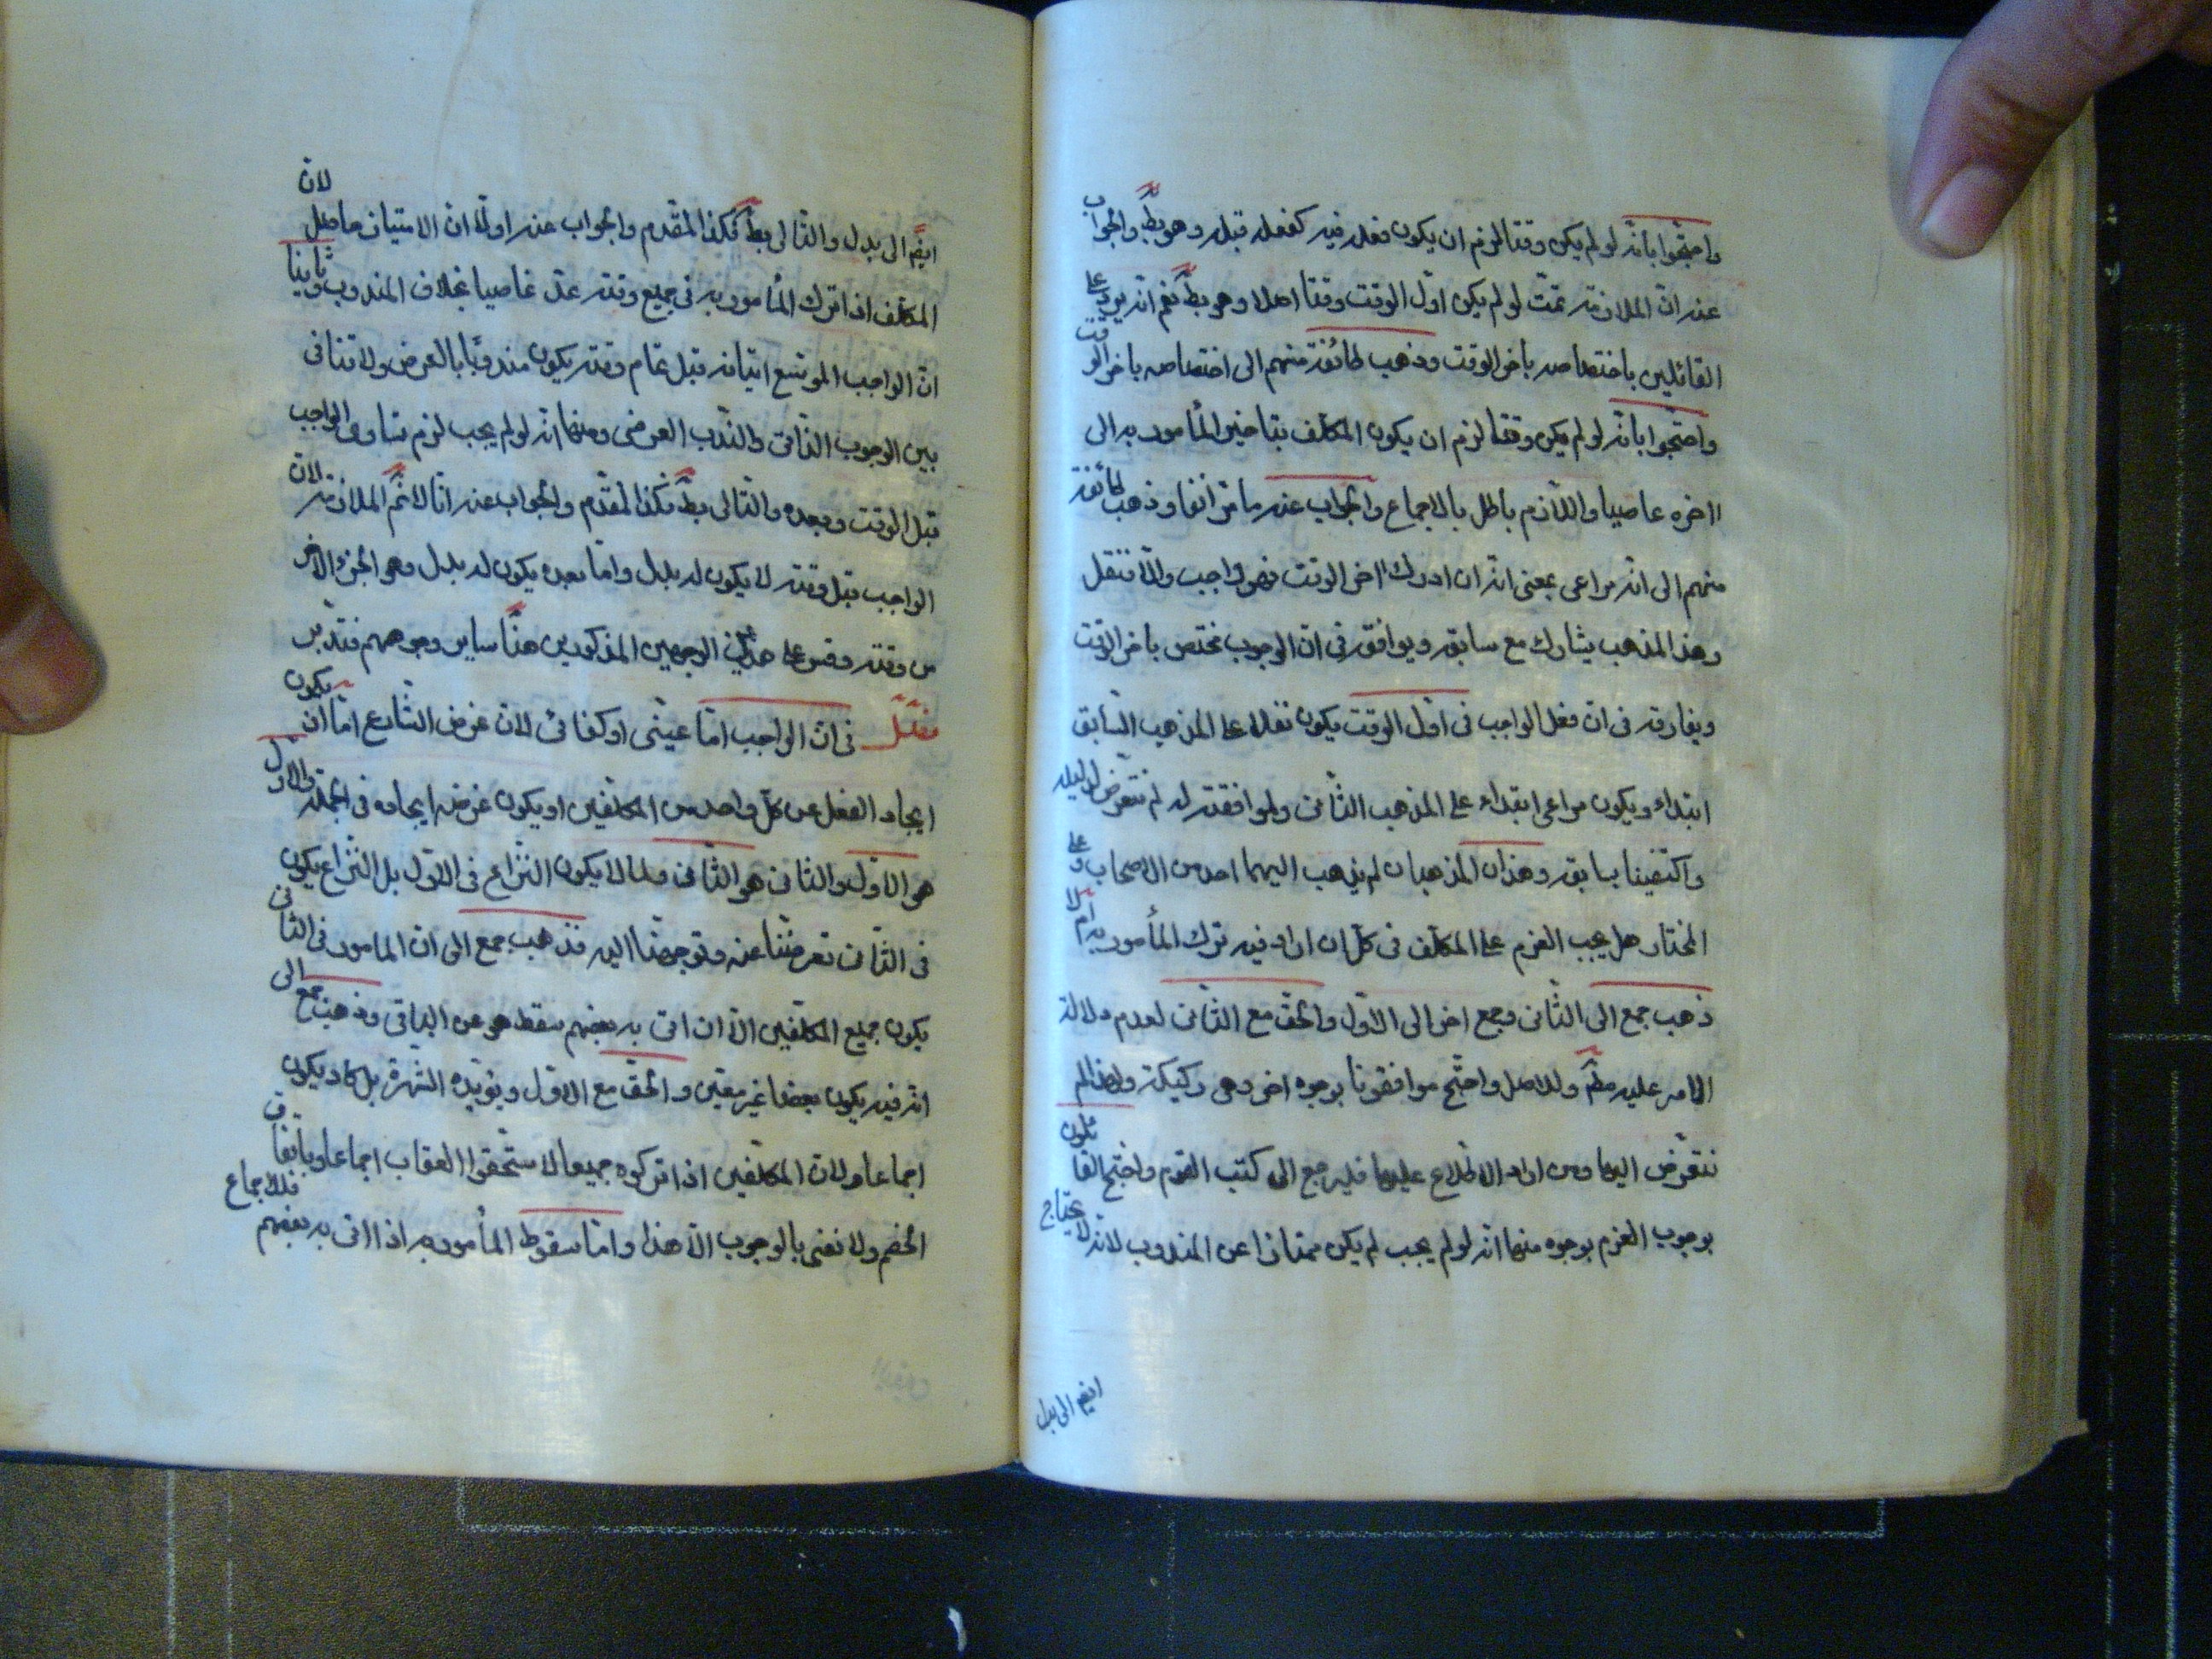 واحتجوا بانه لو لم يكن وقتا لزم ان يكون فعله فيه كفعله قبله وهو بط والجواب
عنه ان الملازمة تمت لو لم يكن اول الوقت وقتا اصلا وهو بط نعم انه يرد على
القائلين باختصاصه باخر الوقت وذهب طائفة منهم الى اختصاصه باخر الوقت
واحتجوا بانه لو لم يكن وقتا لزم ان يكون المكلف بتاخير المأمور به الى
اخره عاصيا واللازم باطل بالاجماع والجواب عنه ما مر آنفا وذهب طائفة
منهم الى انه مراعى بمعنى انه ان ادرك اخر الوقت فهو واجب والا فنفل
وهذا المذهب يشارك مع سابقه ويوافقه فى ان الوجوب مختص باخر الوقت
ويفارقه فى ان فعل الواجب فى اول الوقت يكون نفلا على المذهب السابق
ابتداء ويكون مراعى ابتداء على المذهب الثانى ولموافقته له لم نتعرض لدليله
واكتفينا بسابقه وهذان المذهبان لم يذهب اليهما احد من الاصحاب وعلى
المختار هل يجب العزم على المكلف فى كل ان اراد فيه ترك المأمور به ام لا
ذهب جمع الى الثانى وجمع اخر الى الاول والحق مع الثانى لعدم دلالة
الامر عليه مط وللاصل واحتج موافقونا بوجوه اخر وهى ركيكة ولهذا لم
نتعرض اليها ومن اراد الاطلاع عليها فليرجع الى كتب القوم واحتج القائلون
بوجوب العزم بوجوه منها انه لو لم يجب لم يكن ممتازا عن المندوب لانه لا يحتاج
ايضم الى بدل
ايضم الى بدل والتالى بط فكذا المقدم والجواب عنه اولا ان الامتياز حاصل لان
المكلف اذا ترك المأمور به فى جميع وقته عد عاصيا بخلاف المندوب وثانيا
ان الواجب الموسع اتيانه قبل تمام وقته يكون مندوبا بالعرض ولا تنافى
بين الوجوب الذاتى والندب العرضى ومنها انه لو لم يجب لزم تساوى الواجب
قبل الوقت وبعده والتالى بط فكذا المقدم والجواب عنه انا لا نم الملازمة لان
الواجب قبل وقته لا يكون له بدل واما بعده يكون له بدل وهو الجزء الاخر
من وقته وقس على هذين الوجهين المذكورين هنا ساير وجوههم فتدبر
فصل فى ان الواجب اما عينى او كفائى لان غرض الشارع اما ان يكون
ايجاد الفعل من كل واحد من المكلفين او يكون غرضه ايجاده فى الجملة والاول
هو الاول والثانى هو الثانى ولما لا يكون النزاع فى الاول بل النزاع يكون
فى الثانى تعرضنا عنه وتوجهنا اليه فذهب جمع الى ان المامور فى الثانى
يكون جميع المكلفين الا ان اتى به بعضهم سقط هو عن الباقى وذهب جمع الى
انه فيه يكون بعضا غير معين والحق مع الاول ويؤيده الشهرة بل كاد يكون
اجماعا ولان المكلفين اذا تركوه جميعا لاستحقوا العقاب اجماعا وباتفاق
الخصم ولا نعنى بالوجوب الا هذا واما سقوط المأمور به اذا اتى به بعضهم فللاجماع